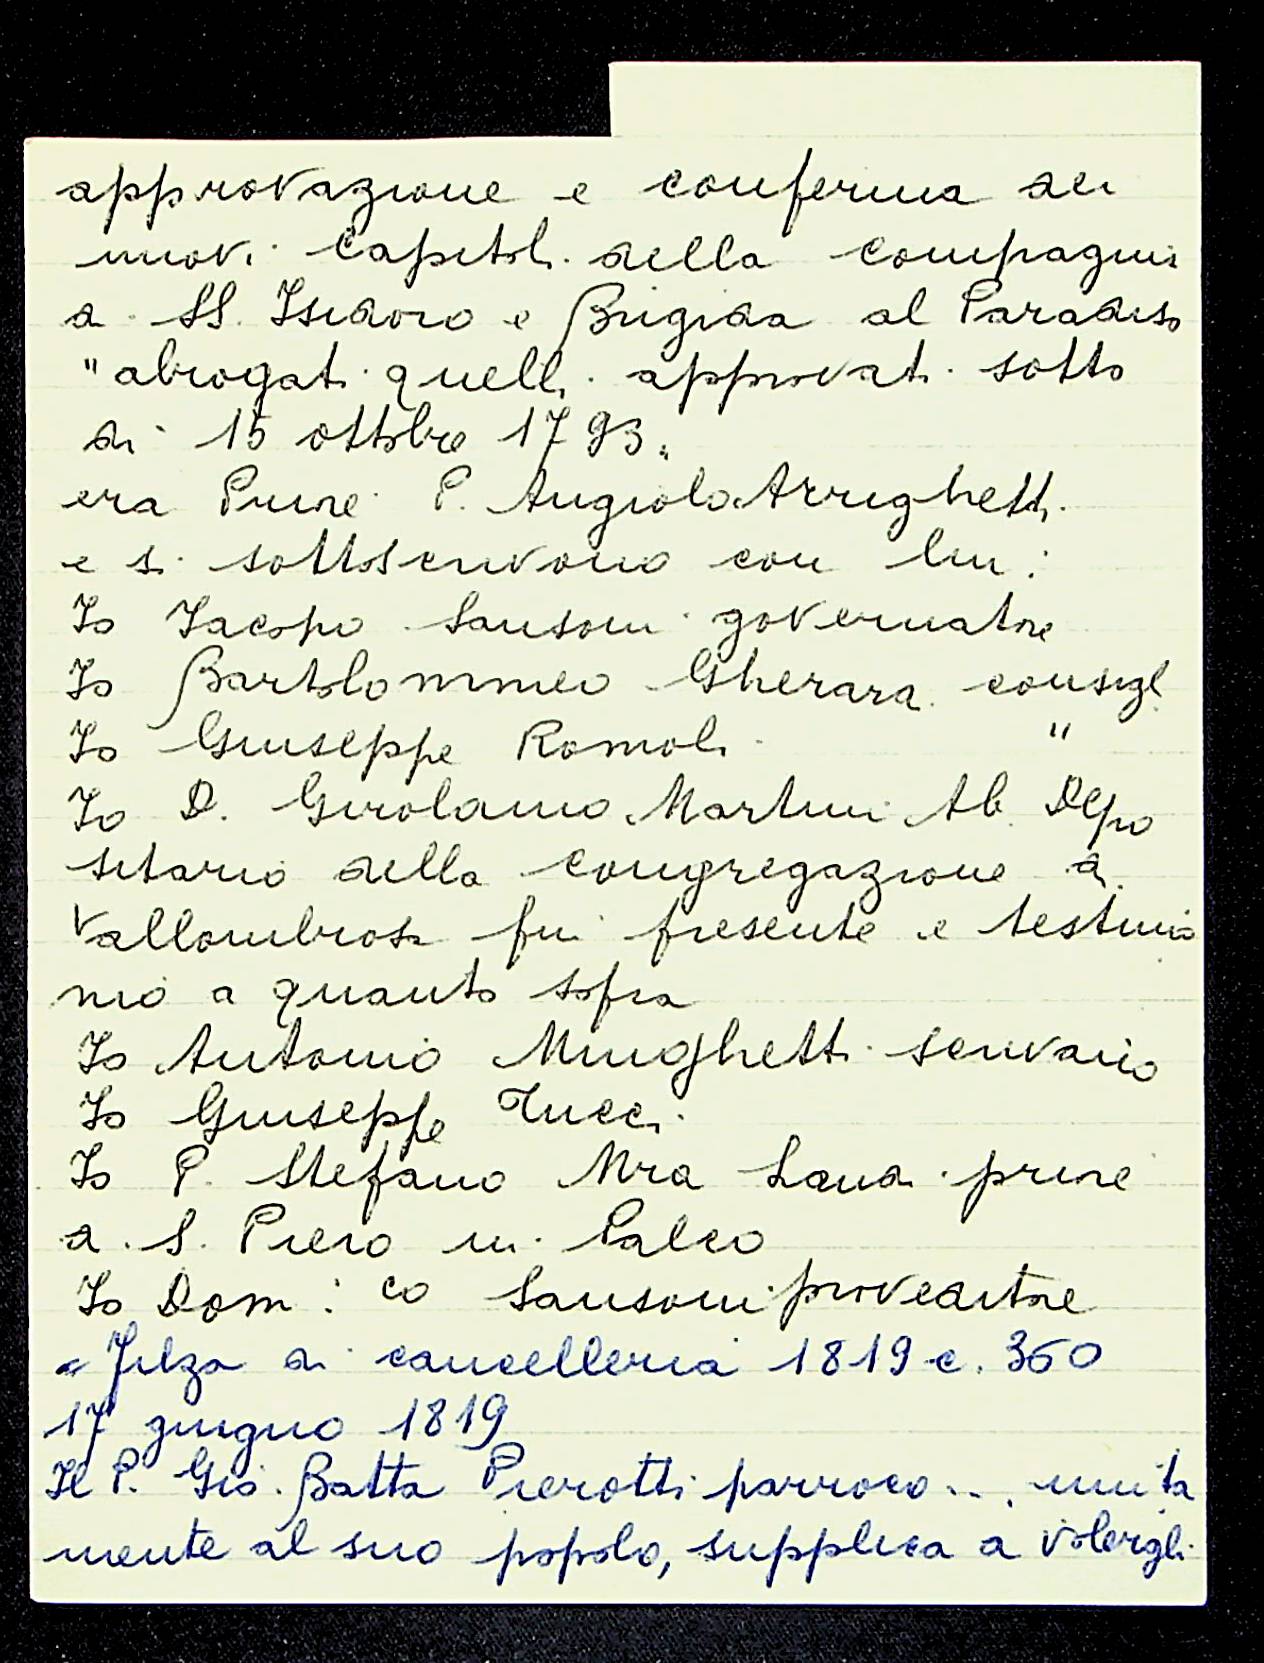 approvazione e conferma dei
nuovi capitoli della compagni
a SS. Isidoro e Brigida al Paradiso
"abrogati quelli approvati sotto
di 15 ottobre 1793"
era Priore P. Angiolo Arrighetti
e si sottoscrivono con lui:
Io Iacopo Sansoni governatore
Io Bartolommeo Gherardi consigl.
Io Giuseppe Romoli "
Io D. Girolamo Martini Ab. Depo
sitario della congregazione di
Vallombrosa fui presente e testimo
nio a quanto sopra
Io Antonio Minghetti scrivano
Io Giuseppe Tucci
Io P. Stefano Mra priore
di S. Piero in Palco
Io Dom:co Sansoni proveditore
Filza di cancelleria 1819 c. 360
17 giugno 1819
Il P. Gio. Batta Pierotti parroco... unita
mente al suo popolo, supplica a volergli